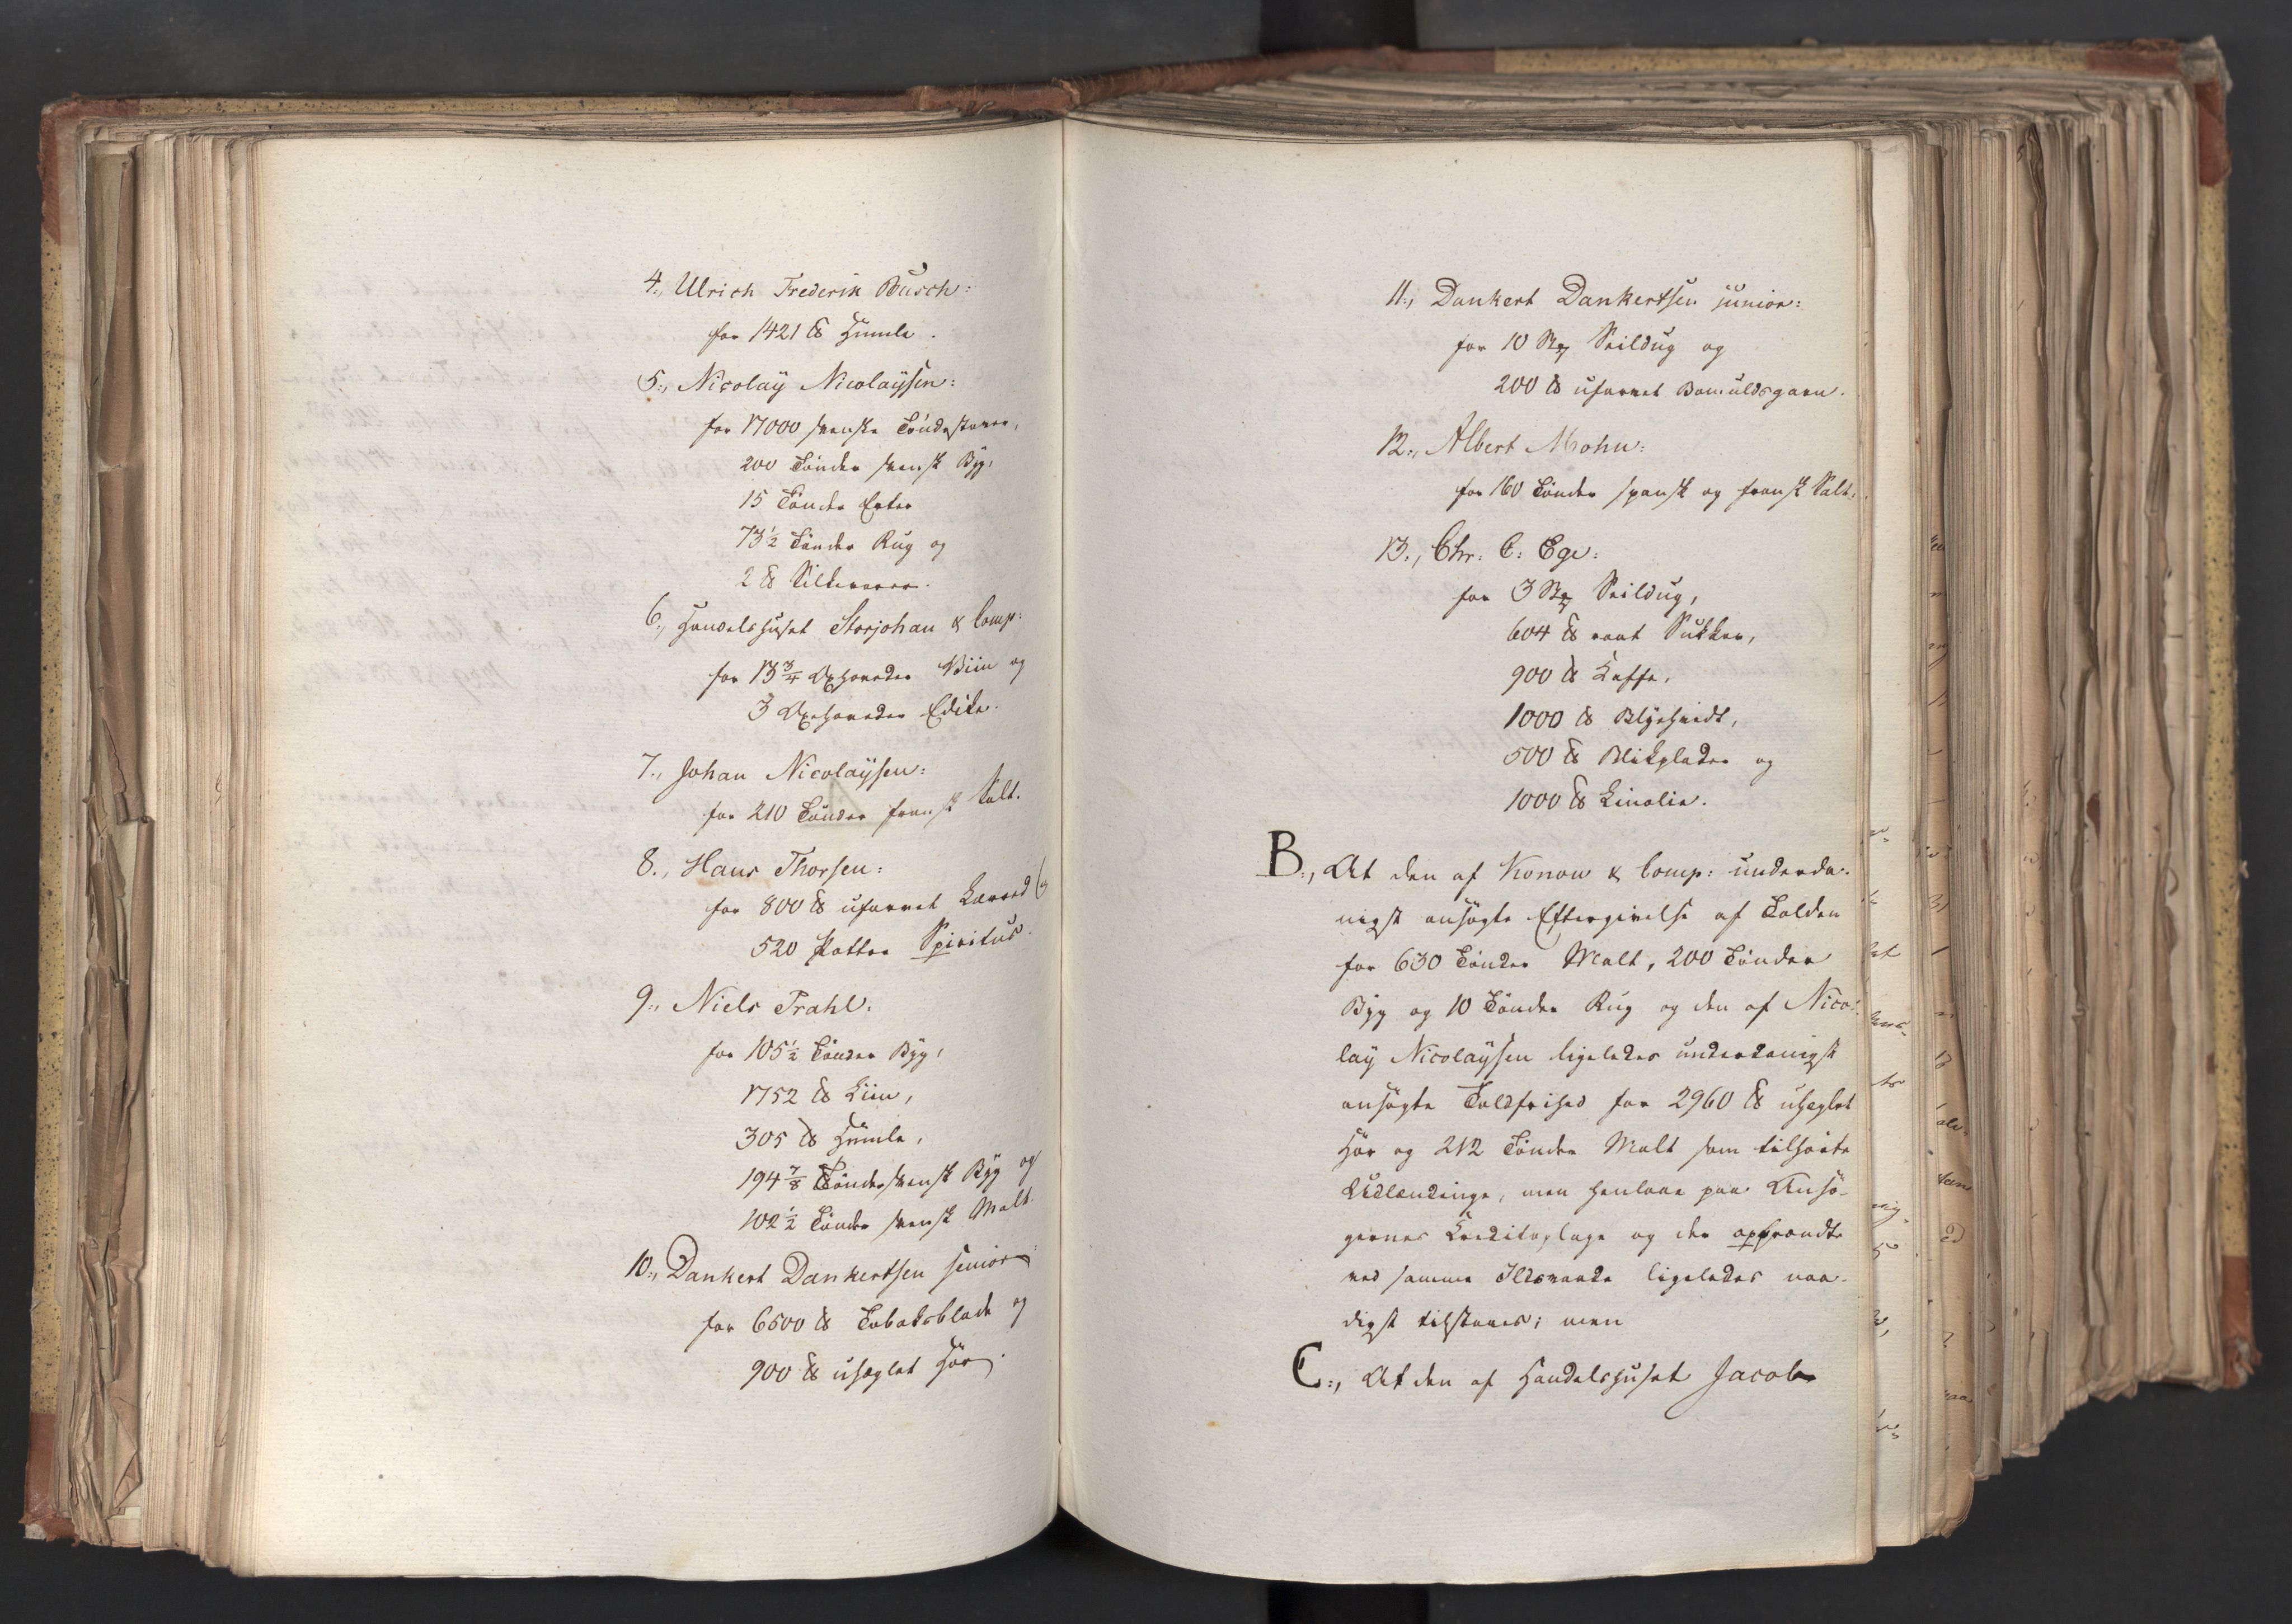 4., Ulrich Frederik Busch:
for 1421 ℔ Humle.
5., Nicolaÿ Nicolaÿsen:
for 17000 svenske Töndestaver,
200 Tönder svensk Byg,
15 Tönder Erter
73½ Tönder Rug og
2 ℔ Silkevarer.
6., Handelshuset Storjohan & Comp:
for 13¾ Oxhoveder Viin og
3 Oxehoveder Edike.
7., Johan Nicolaÿsen:
for 210 Tönder fransk Salt.
8., Hans Thorsen:
for 800 ℔ ufarvet Lærred
520 Potter Spiritus.
9., Niels Prahl:
for 105½ Tönder Byg,
1752 ℔ Liim,
305 ℔ Humle,
194⅞ Tönder svensk Byg og
102½ Tönder svensk Malt.
10., Dankert Dankertsen senior:
for 6500 ℔ Tobaksblade og
900 ℔ uheglet Hör.
11., Dankert Dankertsen junior:
for 10 Stÿ Seildug og
200 ℔ ufarvet Bomuldsgarn.
12., Albert Mohn:
for 160 Tönder spansk og fransk Salt.
13., Chr: C: Ege:
for 3 Stÿ Seildug,
604 ℔ raat Sukker,
900 ℔ Kaffe,
1000 ℔ Blyehvidt,
500 ℔ Blikplader og
1000 ℔ Linolie.
B., At den af Konow & Comp: underda-
nigst ansögte Eftergivelse af Tolden
for 630 Tönder Malt, 200 Tönder
Byg og 10 Tönder Rug og den af Nico-
laÿ Nicolaÿsen ligeledes underdanigst
ansögte Toldfrihed for 2960 ℔ uheglet
Hör og 212 Tönder Malt som tilhörte
Udlændinge, men henlaae paa Ansö-
gernes Creditoplage og der opbrændte
ved samme Ildsvaade ligeledes naa-
digst tilstaaes; men
C., At den af Handelshuset Jacob